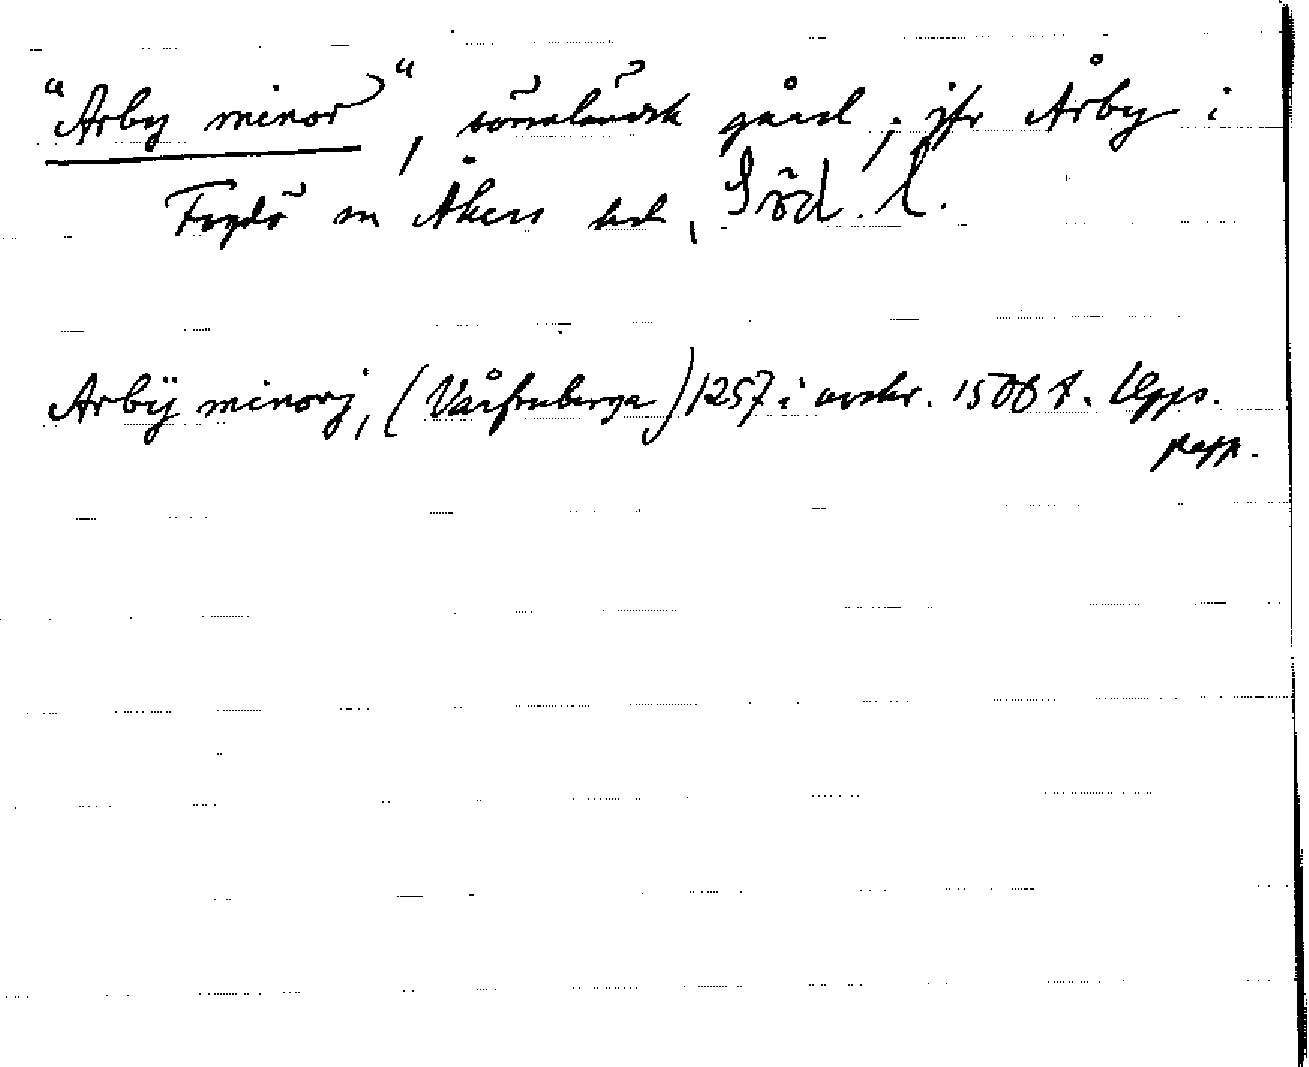 "Arby minor", sörmländsk gård; jfr Årby i
Fogdö sn Åkers hd, Söd. l.
Arbÿ minorj, (Vårfruberga) 1257 i avskr. 1500 t. Upps.
papp.